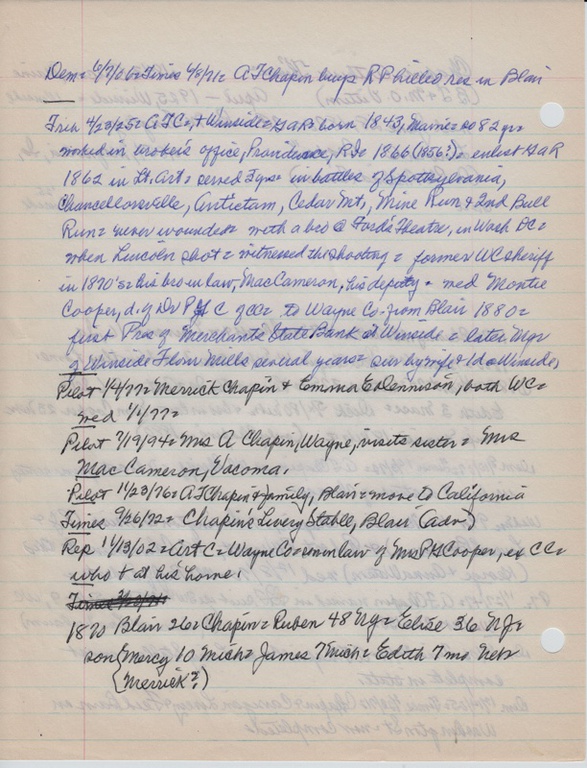 Dem= 6/7/06= Times 4/8/71= A F Chapin buys R P hilled res in Blair
Trib 4/23/25= A F C, + Winside= GaR= born 1843, Maine= ao 82 yr=
worked in broker's office, Providence, R I= 1866 (1856?)= enlist GaR
1862 in Lt. Art= served 3 yr= in battles of Spottsylvania,
Chancellorsville, Antietam, Cedar Mt, Mine Run & 2nd Bull
Run= never wounded= with a bro @ Ford's Theatre, in Wash DC=
when Lincoln shot= witnessed the shooting= former WC sheriff
in 1870's= his bro in law, Mac Cameron, his deputy= med Montie
Cooper, d. of Dr P H C of CC= to Wayne Co. from Blair 1880=
first Pres of Merchants State Bank at Winside= later Mgr
of Winside Flour Mills several years= sur by wife & 1 d= Winside,
Pilot 1/4/77= Merrick Chapin & Emma E Dennison, both WC=
med 1/1/77=
Pilot 7/19/94= Mrs A Chapin, Wayne, visits sister= Mrs
Mac Cameron, Vacoma.
Pilot 11/23/76= A F Chapin & family, Blair= move to California
Times 9/26/72= Chapin's Livery Stable, Blair (adv.)
Rep 11/13/02= Art C= Wayne Co= son in law of Mrs P H Cooper, ex CC=
who + at his home.
1870 Blair 262= Chapin= Ruben 48 NY= Elise 36 NJ=
son (Mercy 10 Mich= James 7 Mich= Edith 7 mo Neb
(Merrick?)